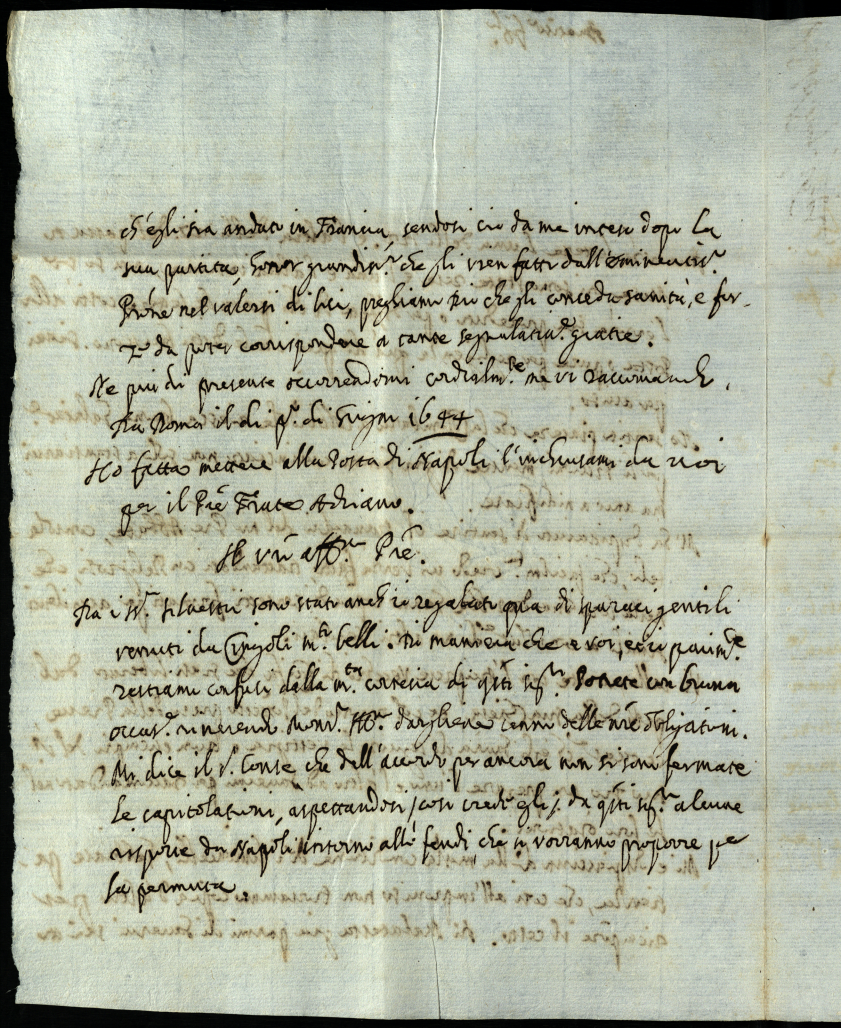 ch'egli sia andato in Francia, sendosi ciò da me inteso dopo la
sua partita, honor grandiss.º che gli vien fatto dall'eminentiss.º
Prône nel valersi di lui, preghiamo Dio che gli conceda sanità, e for-
za da poter corrispondere a tante segnalatiss.e gratie.
Ne più di presente occorrendomi cordialm.te me vi raccomando.
Da Roma il dì p.º di Giugno 1644
Ho fatto mettere alla Posta di Napoli l'inchiusami da voi
per il Prē Frate Adriano.
Il vrō aff.mo Prē.
Da i SS.ri Silvestri sono stato anch'io regalato di sparaci gentili
venuti da Cingoli m.to belli. Di maniera che e voi, et io parim.te
restiamo confusi dalla m.ta cortesia di q̄sti sig.ri Potrete con buona
occas.e rinverendo Mons.r darghene cenno delle nr̄e obligationi.
Mi dice il S.r Conte che dell'accordo per ancora non si sono fermate
le capitolationi, aspettandosi /così crede egli/ da q̄sti sig.ri alcune
risposte da Napoli intorno alli fondi, che si vorranno proporre per
la permuta.